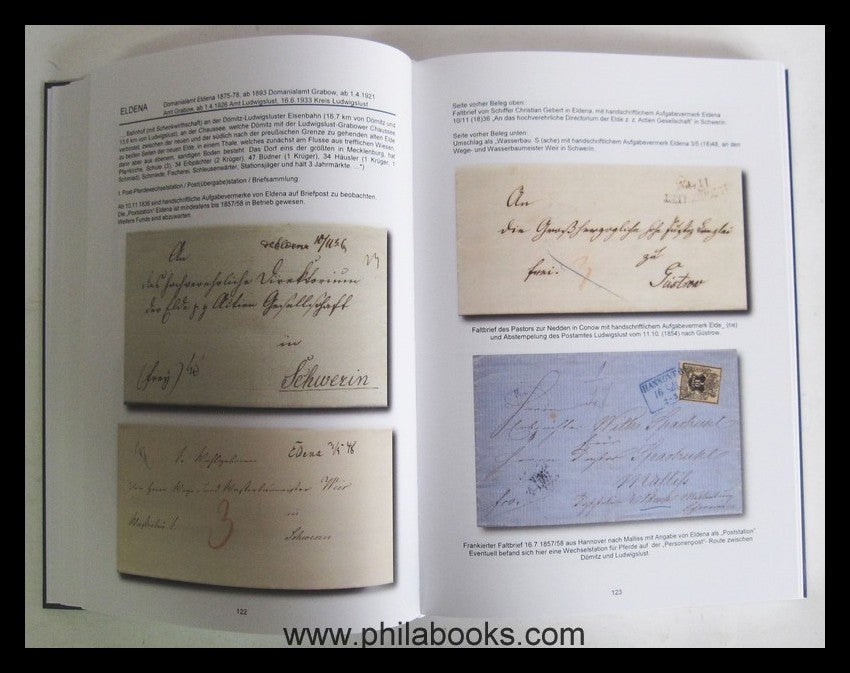 ELDENA
Domanialamt Eldena 1875-78, ab 1893 Domanialamt Grabow, ab 1.4.1921
Amt Grabow, ab 1.4.1926 Amt Ludwigslust, 16.6.1933 Kreis Ludwigslust
„Bahnhof (mit Schenkwirthschaft) an der Dömitz-Ludwigsluster Eisenbahn (16,7 km von Dömitz und
13,6 km von Ludwigslust), an der Chaussee, welche Dömitz mit der Ludwigslust-Grabower Chaussee
verbindet, zwischen der neuen und der südlich nach der preussischen Grenze zu gehenden alten Elde
zu beiden Seiten der neuen Elde, in einem Thale, welches zunächst am Flusse aus trefflichen Wiesen,
dann aber aus ebenem, sandigen Boden besteht. Das Dorf eins der größten in Mecklenburg, hat
Pfarrkirche, Schule (3), 34 Erbpächter (2 Krüger), 47 Büdner (1 Krüger), 34 Häusler (1 Krüger, 1
Schmied), Schmiede, Fischerei, Schleusenwärter, Stationsjäger und hält 3 Jahrmärkte. ...")
I. Post-Pferdewechselstation / Post(übergabe)station / Briefsammlung
Ab 10.11.1836 sind handschriftliche Aufgabevermerke von Eldena auf Briefpost zu beobachten.
Die „Poststation" Eldena ist mindestens bis 1857/58 in Betrieb gewesen.
Weitere Funde sind abzuwarten.
An
das hochverehrliche Direktorium
der Elde p p Actien Gesellschaft
in
Schwerin
Eldena 3/5 48
in
Schwerin
3
122
Seite vorher Beleg oben:
Faltbrief von Schiffer Christian Gebert in Eldena, mit handschriftlichem Aufgabevermerk Eldena
10/11 (18)36 „An das hochverehrliche Directorium der Elde z. z. Actien Gesellschaft" in Schwerin.
Seite vorher Beleg unten:
Umschlag als „Wasserbau -S (ache) mit handschriftlichem Aufgabevermerk Eldena 3/5 (18)48, an den
Wege- und Wasserbaumeister Weir in Schwerin.
An
die Großherzogliche
zu
frei.
Güstrow
Faltbrief des Pastors zur Nedden in Conow mit handschriftlichem Aufgabevermerk Elde_ (na)
und Abstempelung des Postamtes Ludwigslust vom 11.10. (1854) nach Güstrow.
HANNOVER
Frankierter Faltbrief 16.7.1857/58 aus Hannover nach Malliss mit Angabe von Eldena als „Poststation"
Eventuell befand sich hier eine Wechselstation für Pferde auf der „Personenpost"- Route zwischen
Dömitz und Ludwigslust.
123
www.philabooks.com